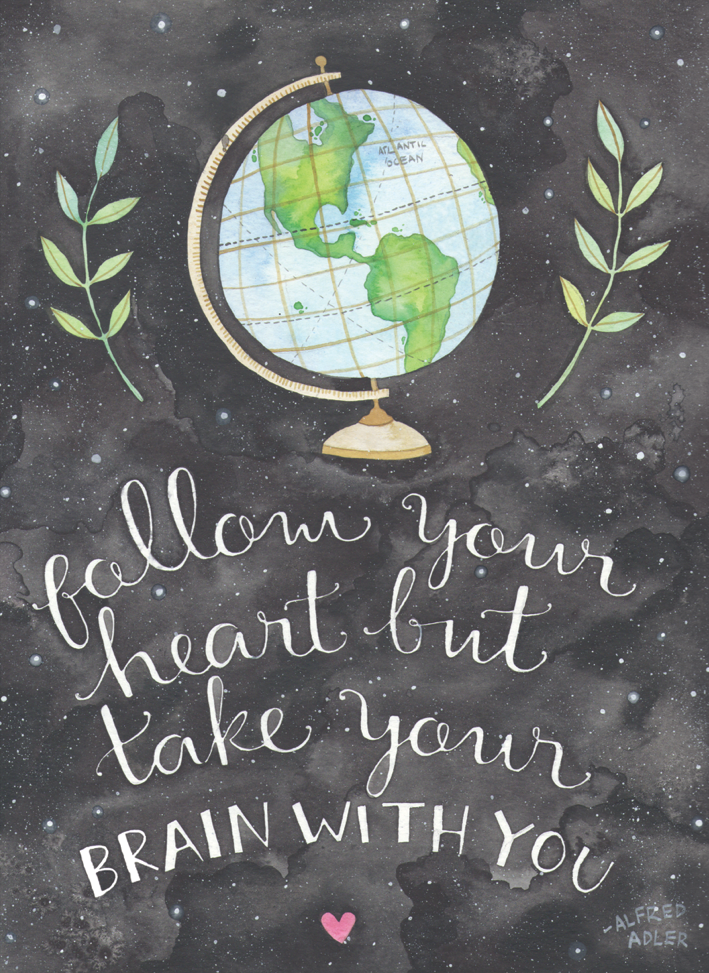 ATLANTIC
OCEAN
follow your
heart but
take your
BRAIN WITH YOU
-ALFRED
ADLER